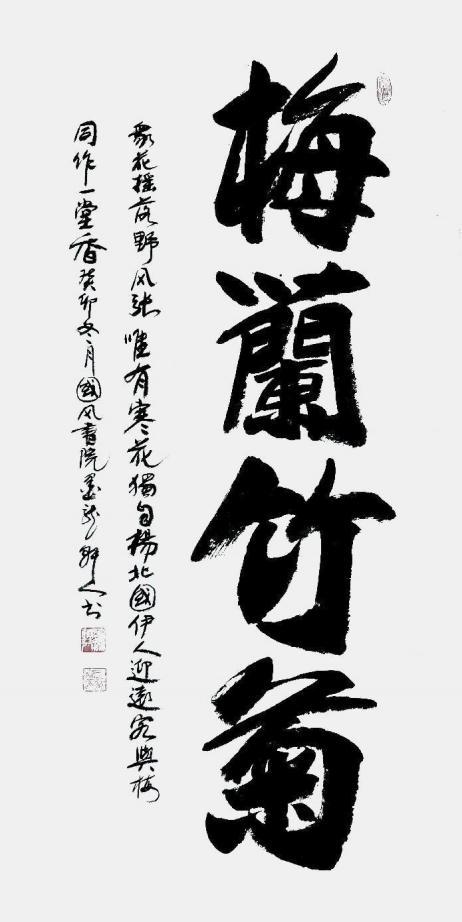 梅蘭竹菊
衆花摇落野风张唯有寒花獨自楊北國伊人迎遠客與梅
同作一堂香癸卯冬月國风書院墨龍野人书